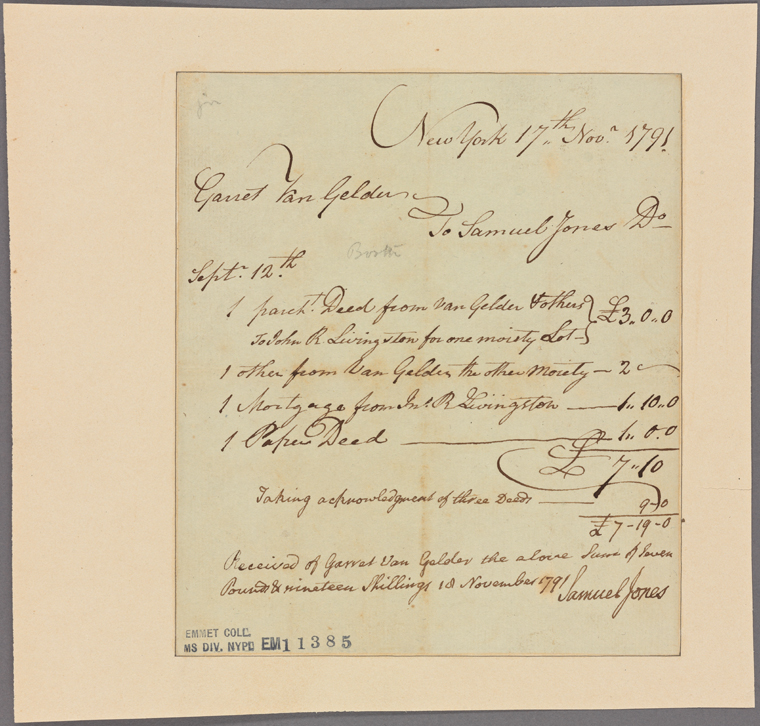 New York 17th Novr. 1791.
Garret Van Gelder
To Samuel Jones Do
Septr. 12th
1 parcht. Deed from Van Gelder & others } £3..0..0
To John R Livingston for one moiety Lot
1 other from Van Gelder the other moiety — 2
1 Mortgage from Jno. R Livingston — 1..10..0
1 Paper Deed — 1..0.0
£ 7..10
Taking acknowledgment of three Deeds — 9-0
£7-19-0
Received of Garret Van Gelder the above Sum of Seven
Pounds & nineteen Shillings 18 November 1791
Samuel Jones
EMMET COLL.
MS DIV. NYPL EM11385